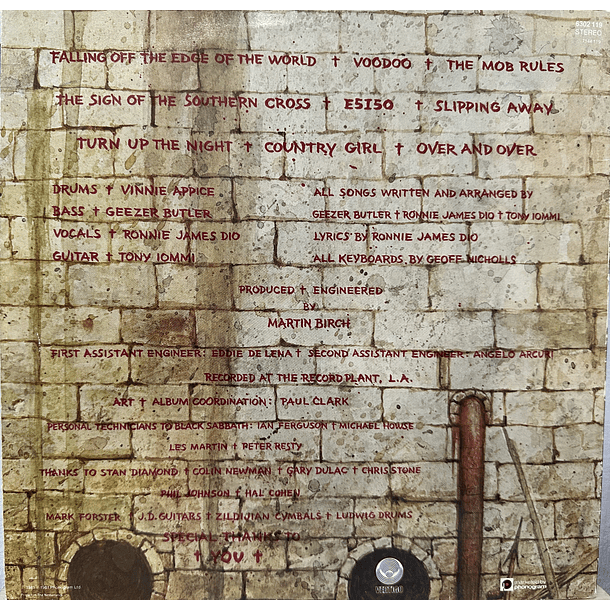 6302 119
STEREO
FALLING OFF THE EDGE OF THE WORLD † VOODOO † THE MOB RULES
THE SIGN OF THE SOUTHERN CROSS † E5150 † SLIPPING AWAY
TURN UP THE NIGHT † COUNTRY GIRL † OVER AND OVER
DRUMS † VINNIE APPICE
BASS † GEEZER BUTLER
VOCALS † RONNIE JAMES DIO
GUITAR † TONY IOMMI
ALL SONGS WRITTEN AND ARRANGED BY
GEEZER BUTLER † RONNIE JAMES DIO † TONY IOMMI
LYRICS BY RONNIE JAMES DIO
ALL KEYBOARDS BY GEOFF NICHOLLS
PRODUCED † ENGINEERED
BY
MARTIN BIRCH
FIRST ASSISTANT ENGINEER: EDDIE DELENA † SECOND ASSISTANT ENGINEER: ANGELO ARCURI
RECORDED AT THE RECORD PLANT, L.A.
ART † ALBUM COORDINATION: PAUL CLARK
PERSONAL TECHNICIANS TO BLACK SABBATH: IAN FERGUSON † MICHAEL HOWSE
LES MARTIN † PETER RESTY
THANKS TO STAN DIAMOND † COLIN NEWMAN † GARY DULAC † CHRIS STONE
PHIL JOHNSON † HAL COHEN
MARK FORSTER † J.D. GUITARS † ZILDJIAN CYMBALS † LUDWIG DRUMS
SPECIAL THANKS TO
† YOU †
VERTIGO
phonogram